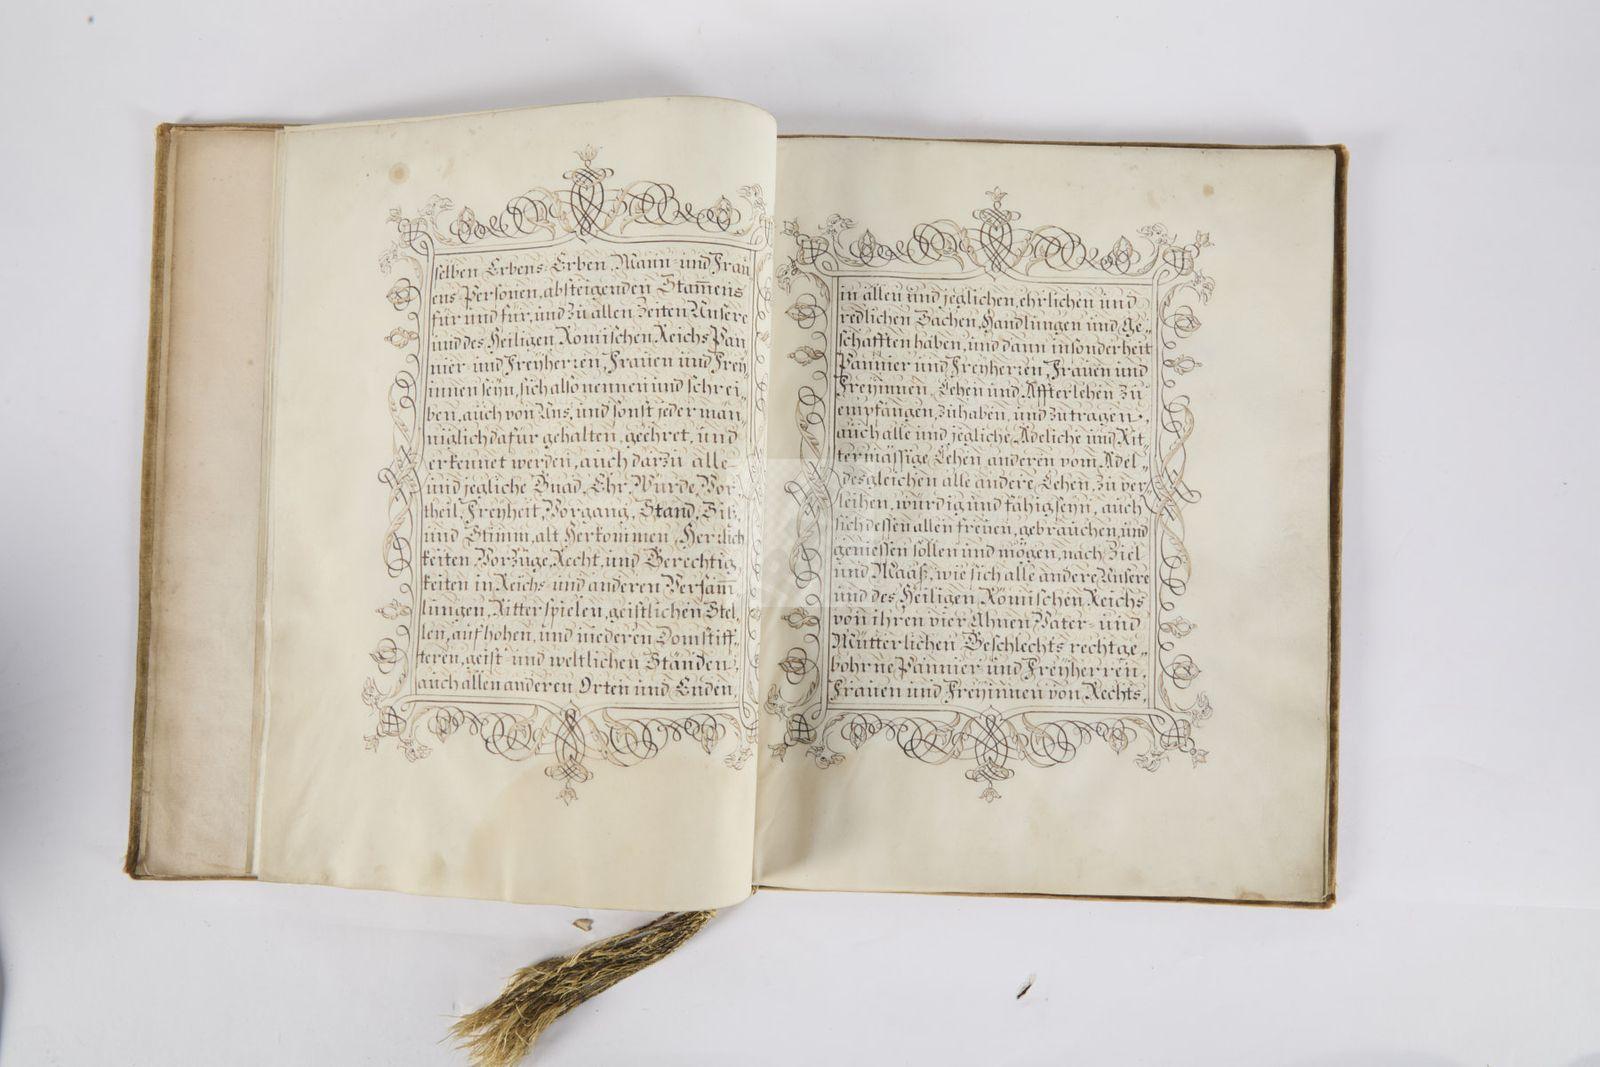 selben Erbens-Erben, Mann- und Frau
ens-Personen, absteigenden Stam̄ens
für und für, und zu allen Zeiten Unsere
und des Heiligen Römischen Reichs Pan
nier- und Freyherren, Frauen und Frey
innen seyn, sich also nennen und schrei-
ben, auch von Uns, und sonst jederman
niglich dafür gehalten, geehret, und
erkennet werden, auch darzu alle
und jegliche Gnad, Ehr, Würde, Vor-
theil, Freyheit, Vorgang, Stand, Sitz
und Stimm, alt Herkommen, Herrlich
keiten, Vorzüge, Recht, und Gerechtig
keiten in Reichs- und anderen Versam̄
lungen, Ritterspielen, geistlichen Stel
len, auf hohen, und niederen Domstiff
teren, geist- und weltlichen Ständen,
auch allen anderen Orten und Enden,
in allen und jeglichen, ehrlichen und
redlichen Sachen, Handlungen und Ge-
schäfften haben, und dann insonderheit
Pannier und Freyherren, Frauen und
Freyinnen, Lehen und Affterlehen zu
empfangen, zu haben, und zu tragen,
auch alle und jegliche, Adeliche und Rit,
termässige Lehen anderen vom Adel,
desgleichen alle andere Lehen, zu ver
leihen, würdig und fähig seyn, auch
sich dessen allen freuen, gebrauchen, und
geniessen sollen und mögen, nach Ziel
und Maaß, wie sich alle andere Unsere
und des Heiligen Römischen Reichs
von ihren vier Ahnen Vater- und
Mütterlichen Geschlechts recht ge-
bohrne Pannier- und Freyherren,
Frauen und Freyinnen von Rechts,